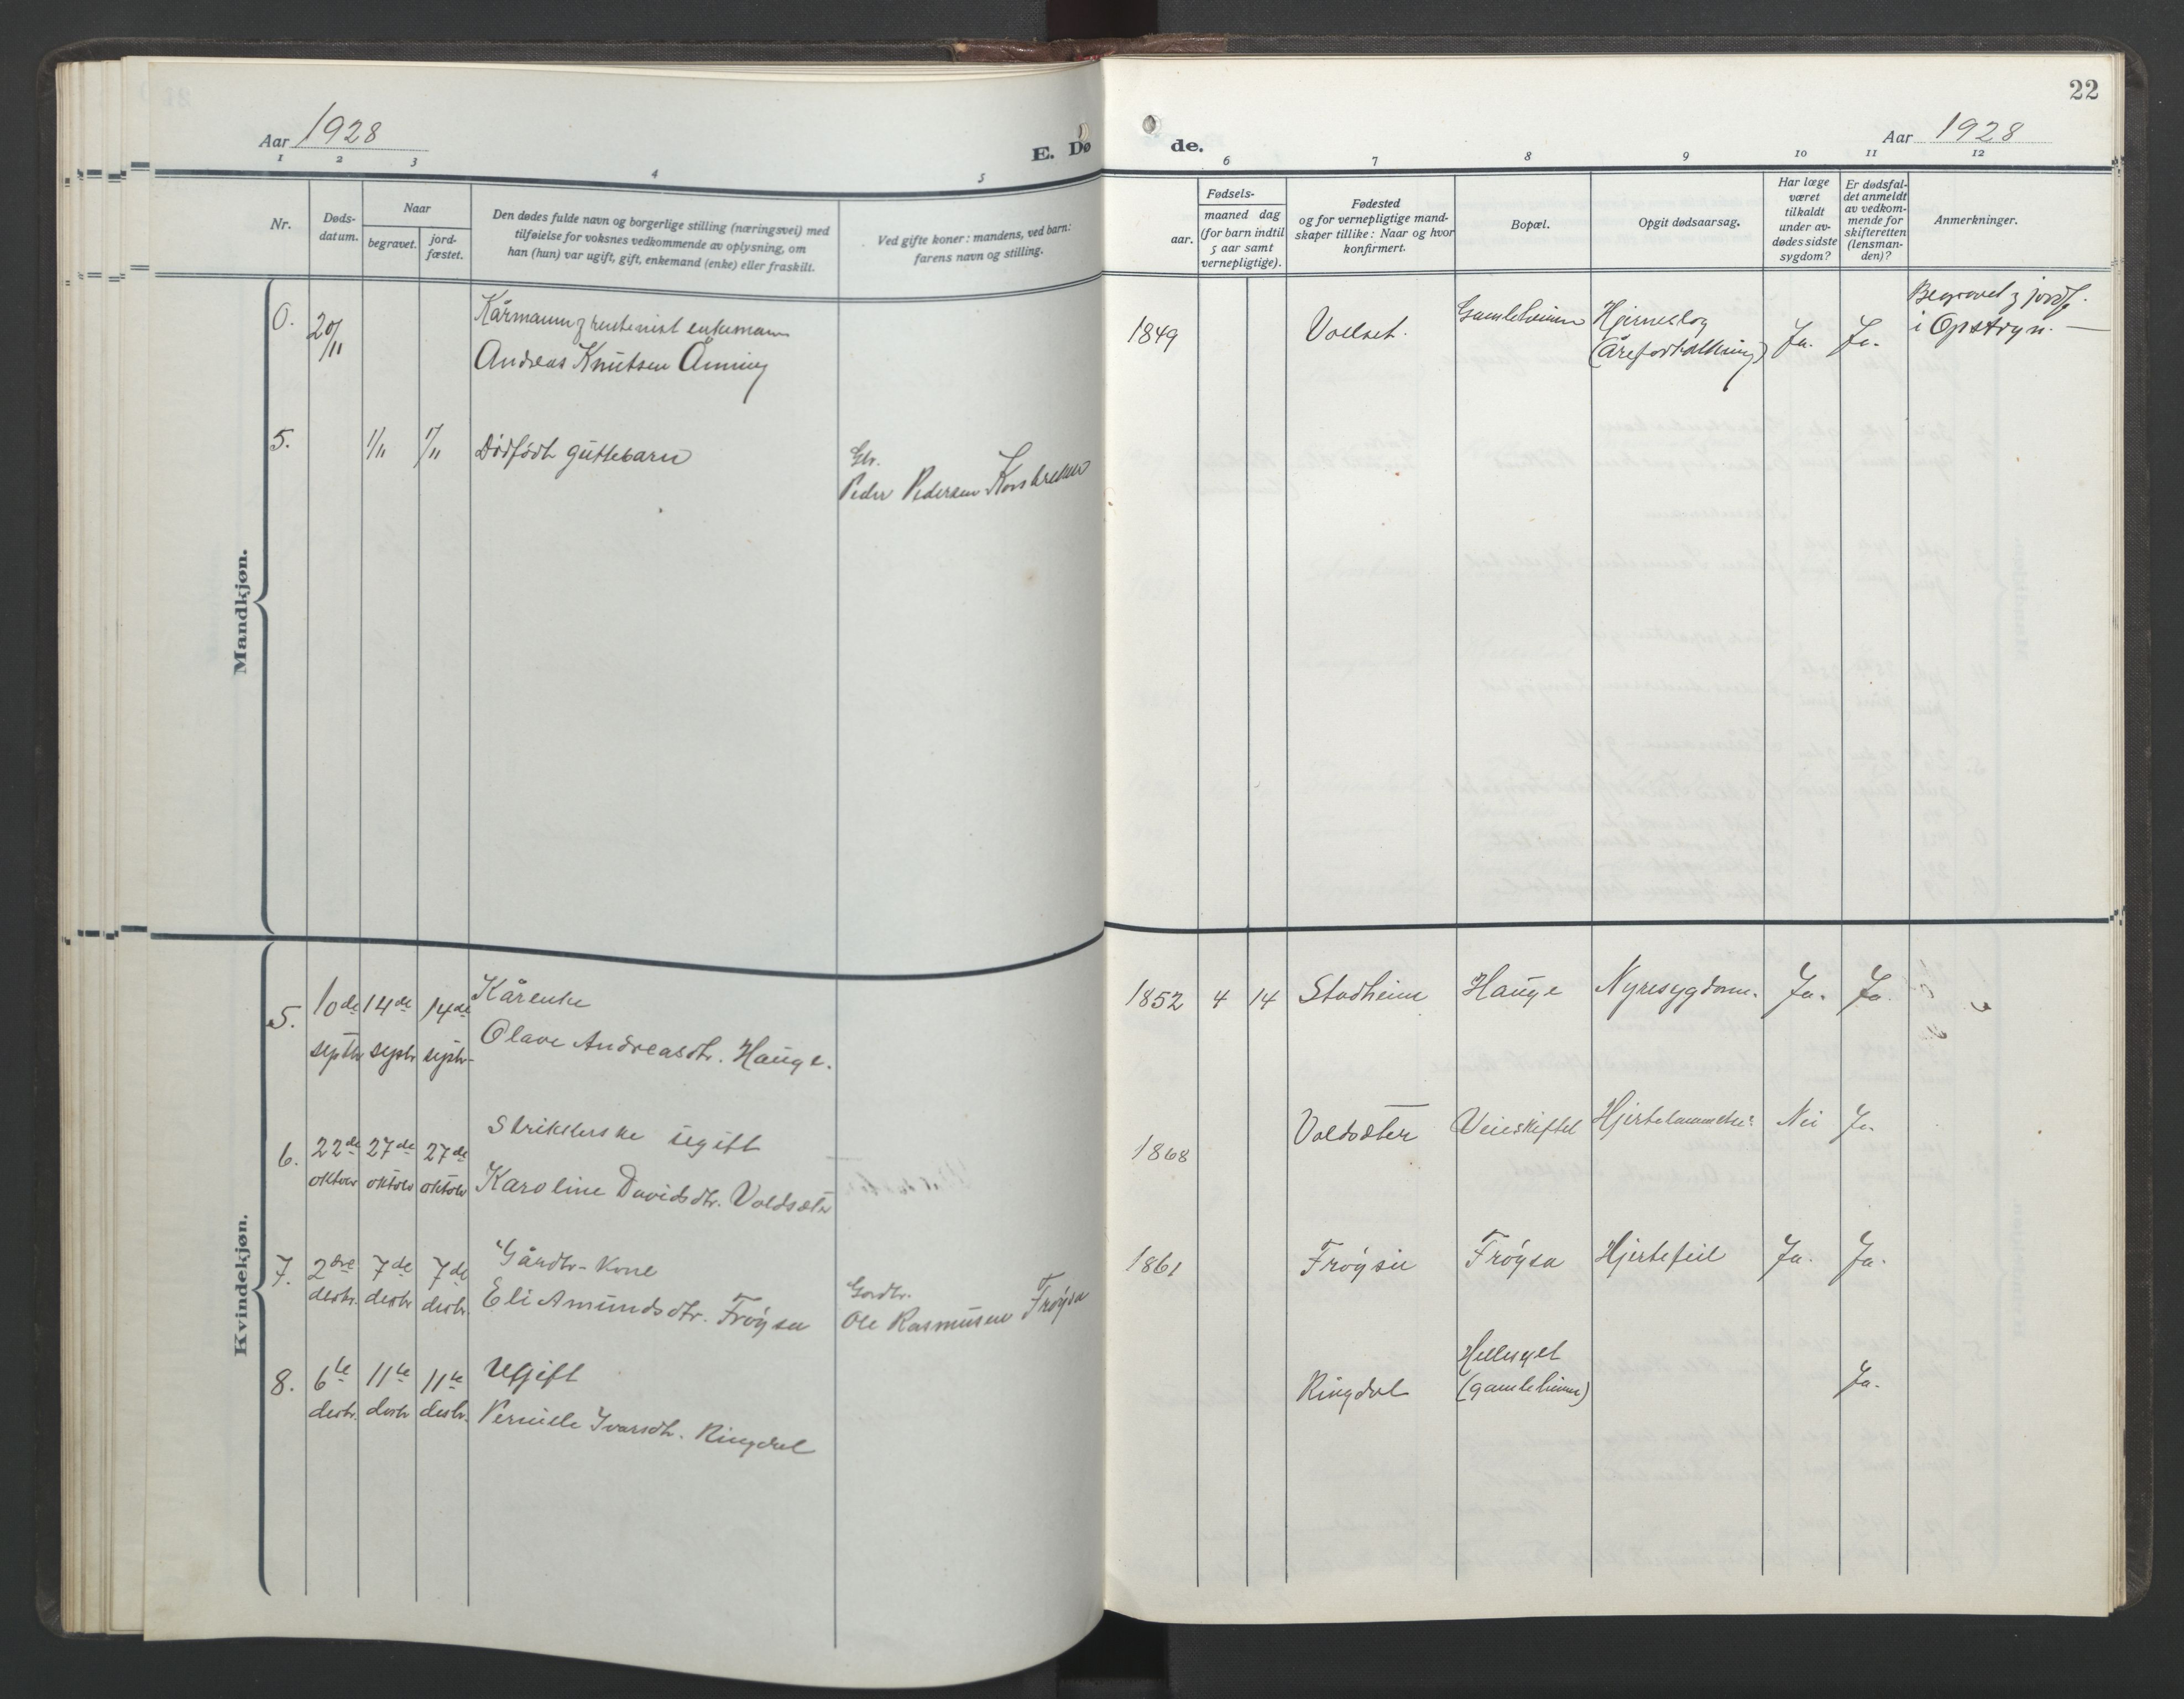 22
Aar 1928
E. Dø
de.
Aar 1928
1 2 3 4 5 6 7 8 9 10 11 12
Nr.
Døds-
datum.
Naar
begravet.
jord-
fæstet.
Den dødes fulde navn og borgerlige stilling (næringsvei) med
tilføielse for voksnes vedkommende av oplysning, om
han (hun) var ugift, gift, enkemand (enke) eller fraskilt.
Ved gifte koner: mandens, ved barn:
farens navn og stilling.
Fødsels-
aar.
maaned dag
(for barn indtil
5 aar samt
vernepligtige).
Fødested
og for vernepligtige mand-
skaper tillike: Naar og hvor
konfirmert.
Bopæl.
Opgit dødsaarsag.
Har læge
været
tilkaldt
under av-
dødes sidste
sygdom?
Er dødsfal-
det anmeldt
av vedkom-
mende for
skifteretten
(lensman-
den)?
Anmerkninger.
Mandkjøn.
0.
20/11
Kårmann & rentenist enkemann
Andreas Knutsen Änning
1849
Vollset.
Gamleheimen
Hjerneslag
(Åreforkalkning)
Ja.
Ja.
Begravet & jordf.
i Opstryn. —
5.
1/11
1/11
Dödfödt guttebarn
Gbr.
Peder Pedersen Korsbrekke
Kvindekjøn.
5.
10de
septbr
14de
septr
14de
septr.
Kårenke
Olave Andreasdtr. Hauge.
1852
4
14
Stadheim
Hauge
Nyresygdom.
Ja.
Ja.
6.
22de
oktobr
27de
oktobr
27de
oktobr
Strikkerske ugift
Karoline Davidsdtr. Voldsæter
1868
Voldsæter
Veieskiftet
Nei
Ja.
7.
2dre
desbr.
7de
desbr
7de
desbr.
Gårdbr-kone
Eli Amundsdtr. Fröysa
Gardbr.
Ole Rasmusen Fröysa
1861
Fröysa
Fröysa
Hjertefeil
Ja.
Ja.
8.
6te
desbr.
11te
desbr
11te
desbr.
Ugift
Pernille Ivarsdtr. Ringdal
Ringdal
Hellesylt
(gamleheimen)
Ja.